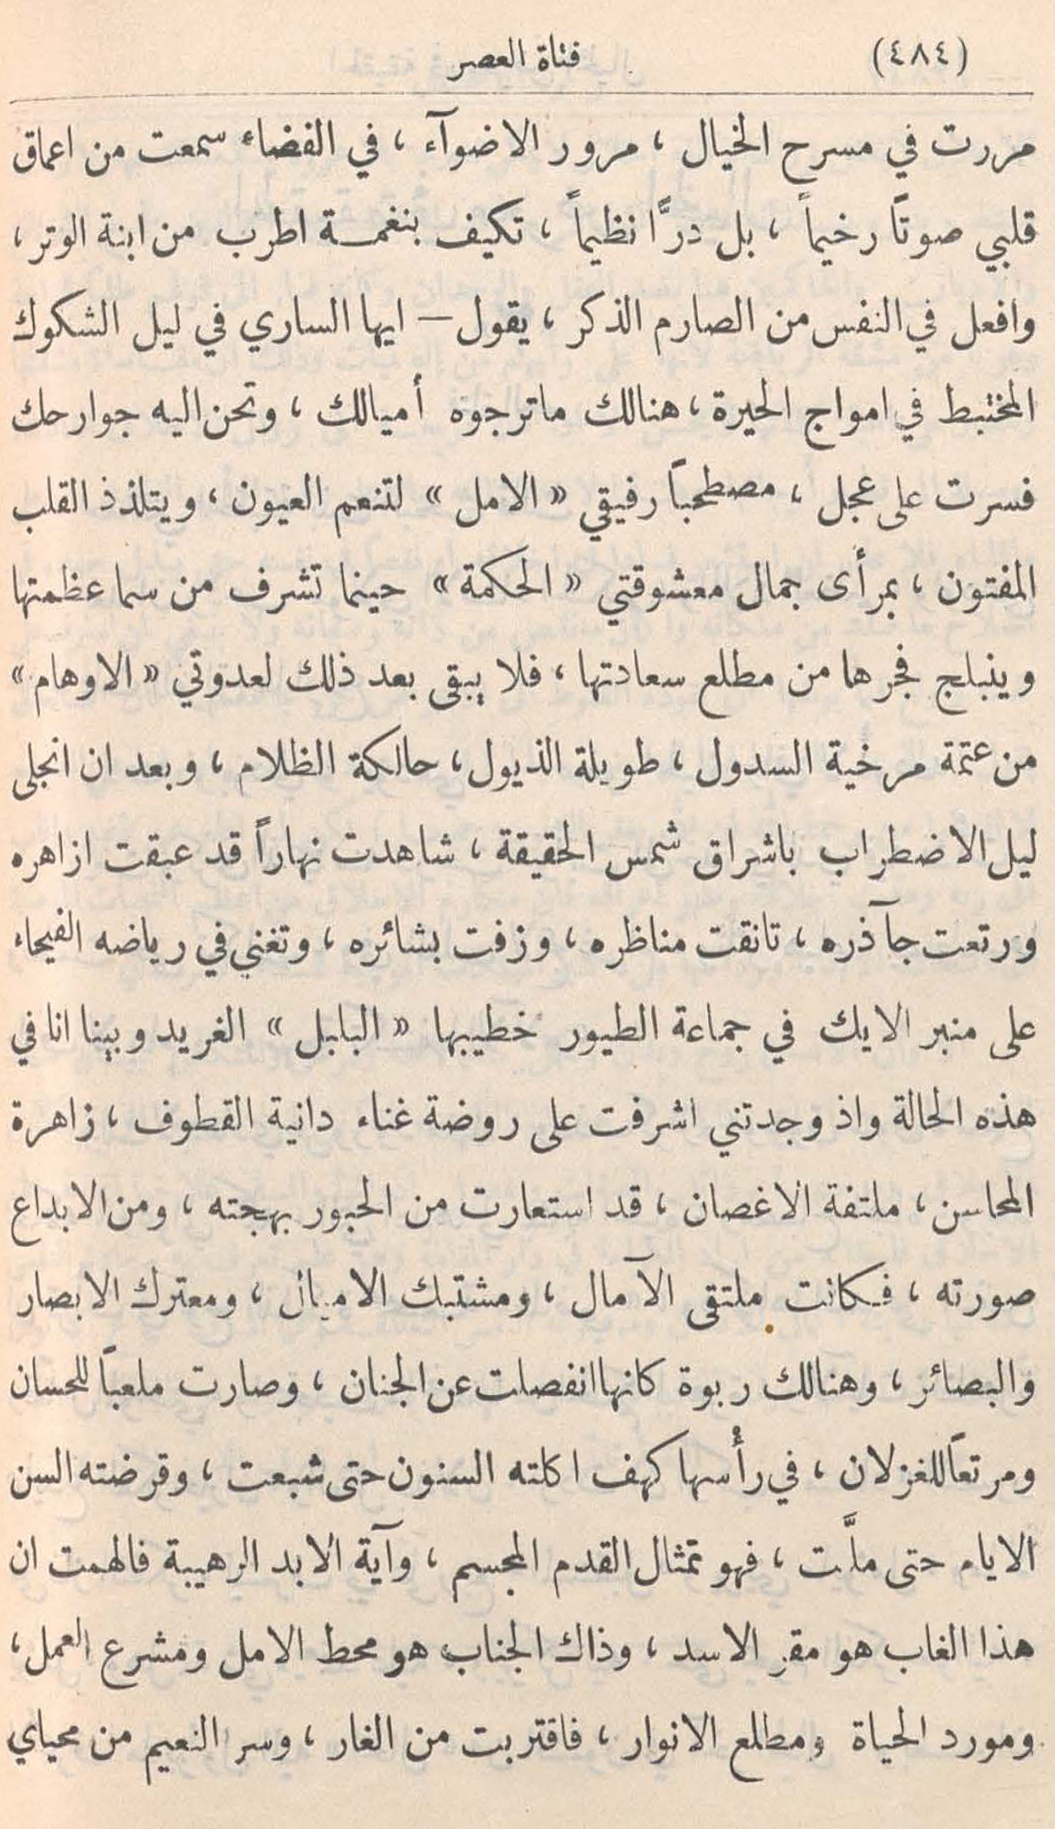 (٤٨٤) فتاة العصر
مررت في مسرح الخيال ، مرور الاضوآء ، في الفضاء سمعت من اعماق
قلبي صوتاً رخيماً ، بل درًّا نظيماً ، تكيف بنغمة اطرب من ابنة الوتر ،
وافعل في النفس من الصارم الذكر ، يقول — ايها الساري في ليل الشكوك
المختبط في امواج الحيرة ، هنالك ماترجوه أميالك ، وتحن اليه جوارحك
فسرت على عجل ، مصطحباً رفيقي « الامل » لتنعم العيون ، ويتلذذ القلب
المفتون ، بمرأى جمال معشوقتي « الحكمة » حينما تشرف من سما عظمتها
وينبلج فجرها من مطلع سعادتها ، فلا يبقى بعد ذلك لعدوتي « الاوهام »
من عتمة مرخية السدول ، طويلة الذيول ، حالكة الظلام ، وبعد ان انجلى
ليل الاضطراب باشراق شمس الحقيقة ، شاهدت نهاراً قد عبقت ازاهره
ورتعت جآذره ، تانقت مناظره ، وزفت بشائره ، وتغنى في رياضه الفيحاء
على منبر الايك في جماعة الطيور خطيبها « البابل » الغريد وبينا انا في
هذه الحالة واذ وجدتني اشرفت على روضة غناء دانية القطوف ، زاهرة
المحاسن ، ملتفة الاغصان ، قد استعارت من الحبور بهجته ، ومن الابداع
صورته ، فكانت ملتقى الآمال ، ومشتبك الاميال ، ومعترك الابصار
والبصائر ، وهنالك ربوة كانها انفصلت عن الجنان ، وصارت ملعباً للحسان
ومرتعاً للغزلان ، في رأسها كهف اكلته السنون حتى شبعت ، وقرضته السن
الايام حتى ملَّت ، فهو تمثال القدم المجسم ، وآية الابد الرهيبة فالهمت ان
هذا الغاب هو مقر الاسد ، وذاك الجناب هو محط الامل ومشرع العمل ،
ومورد الحياة ومطلع الانوار ، فاقتربت من الغار ، وسر النعيم من محياي